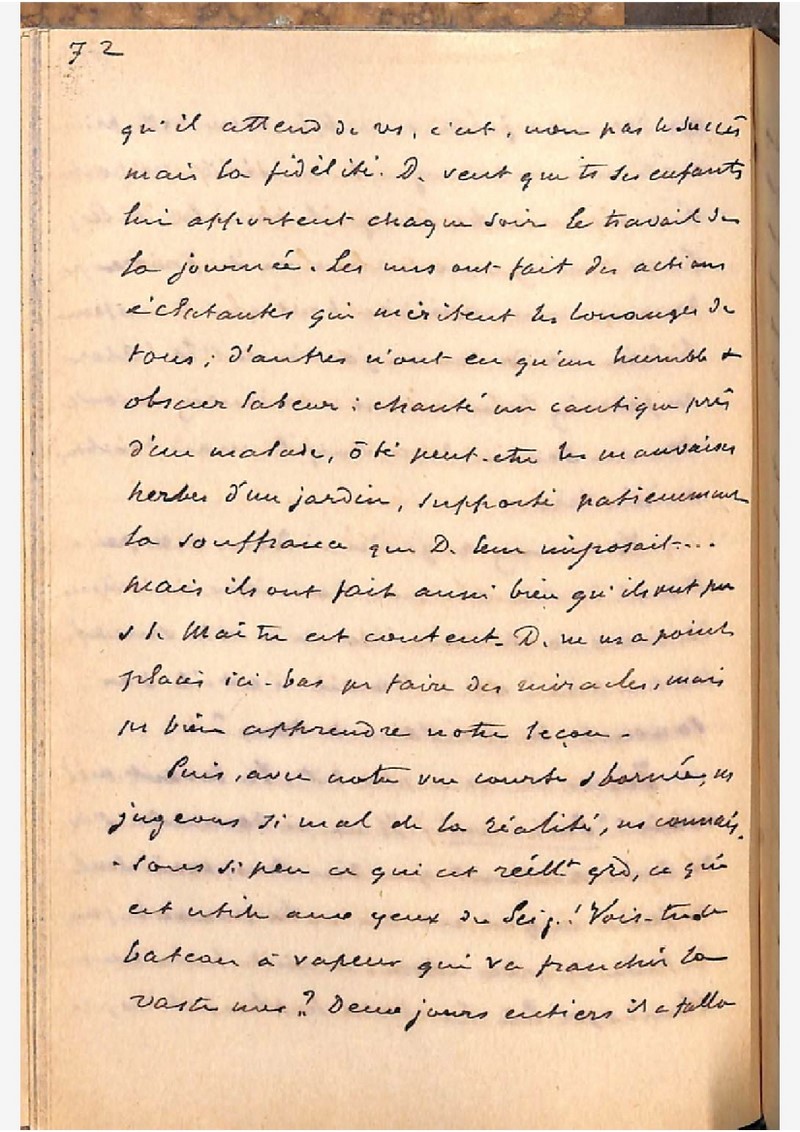 72
qu'il attend de vs, c'est, non pas le succès
mais la fidélité. D. veut que ts ses enfants
lui apportent chaque soir le travail de
la journée. Les uns ont fait des actions
éclatantes qui méritent les louanges de
tous ; d'autres n'ont eu qu'un humble &
obscur labeur : chanté un cantique près
d'un malade, ôté peut-être les mauvaises
herbes d'un jardin, supporté patiemment
la souffrance que D. leur imposait....
Mais ils ont fait aussi bien qu'ils ont pu
& le Maître est content. D. ne ns a point
placés ici-bas pr faire des miracles, mais
pr bien apprendre notre leçon.
Puis, avec notre vue courte & bornée, ns
jugeons si mal de la réalité, ns connais-
-sons si peu ce qui est réellt grd, ce qui
est utile aux yeux du Seig.! Vois-tu le
bateau à vapeur qui va franchir la
vaste mer ? Deux jours entiers il a fallu